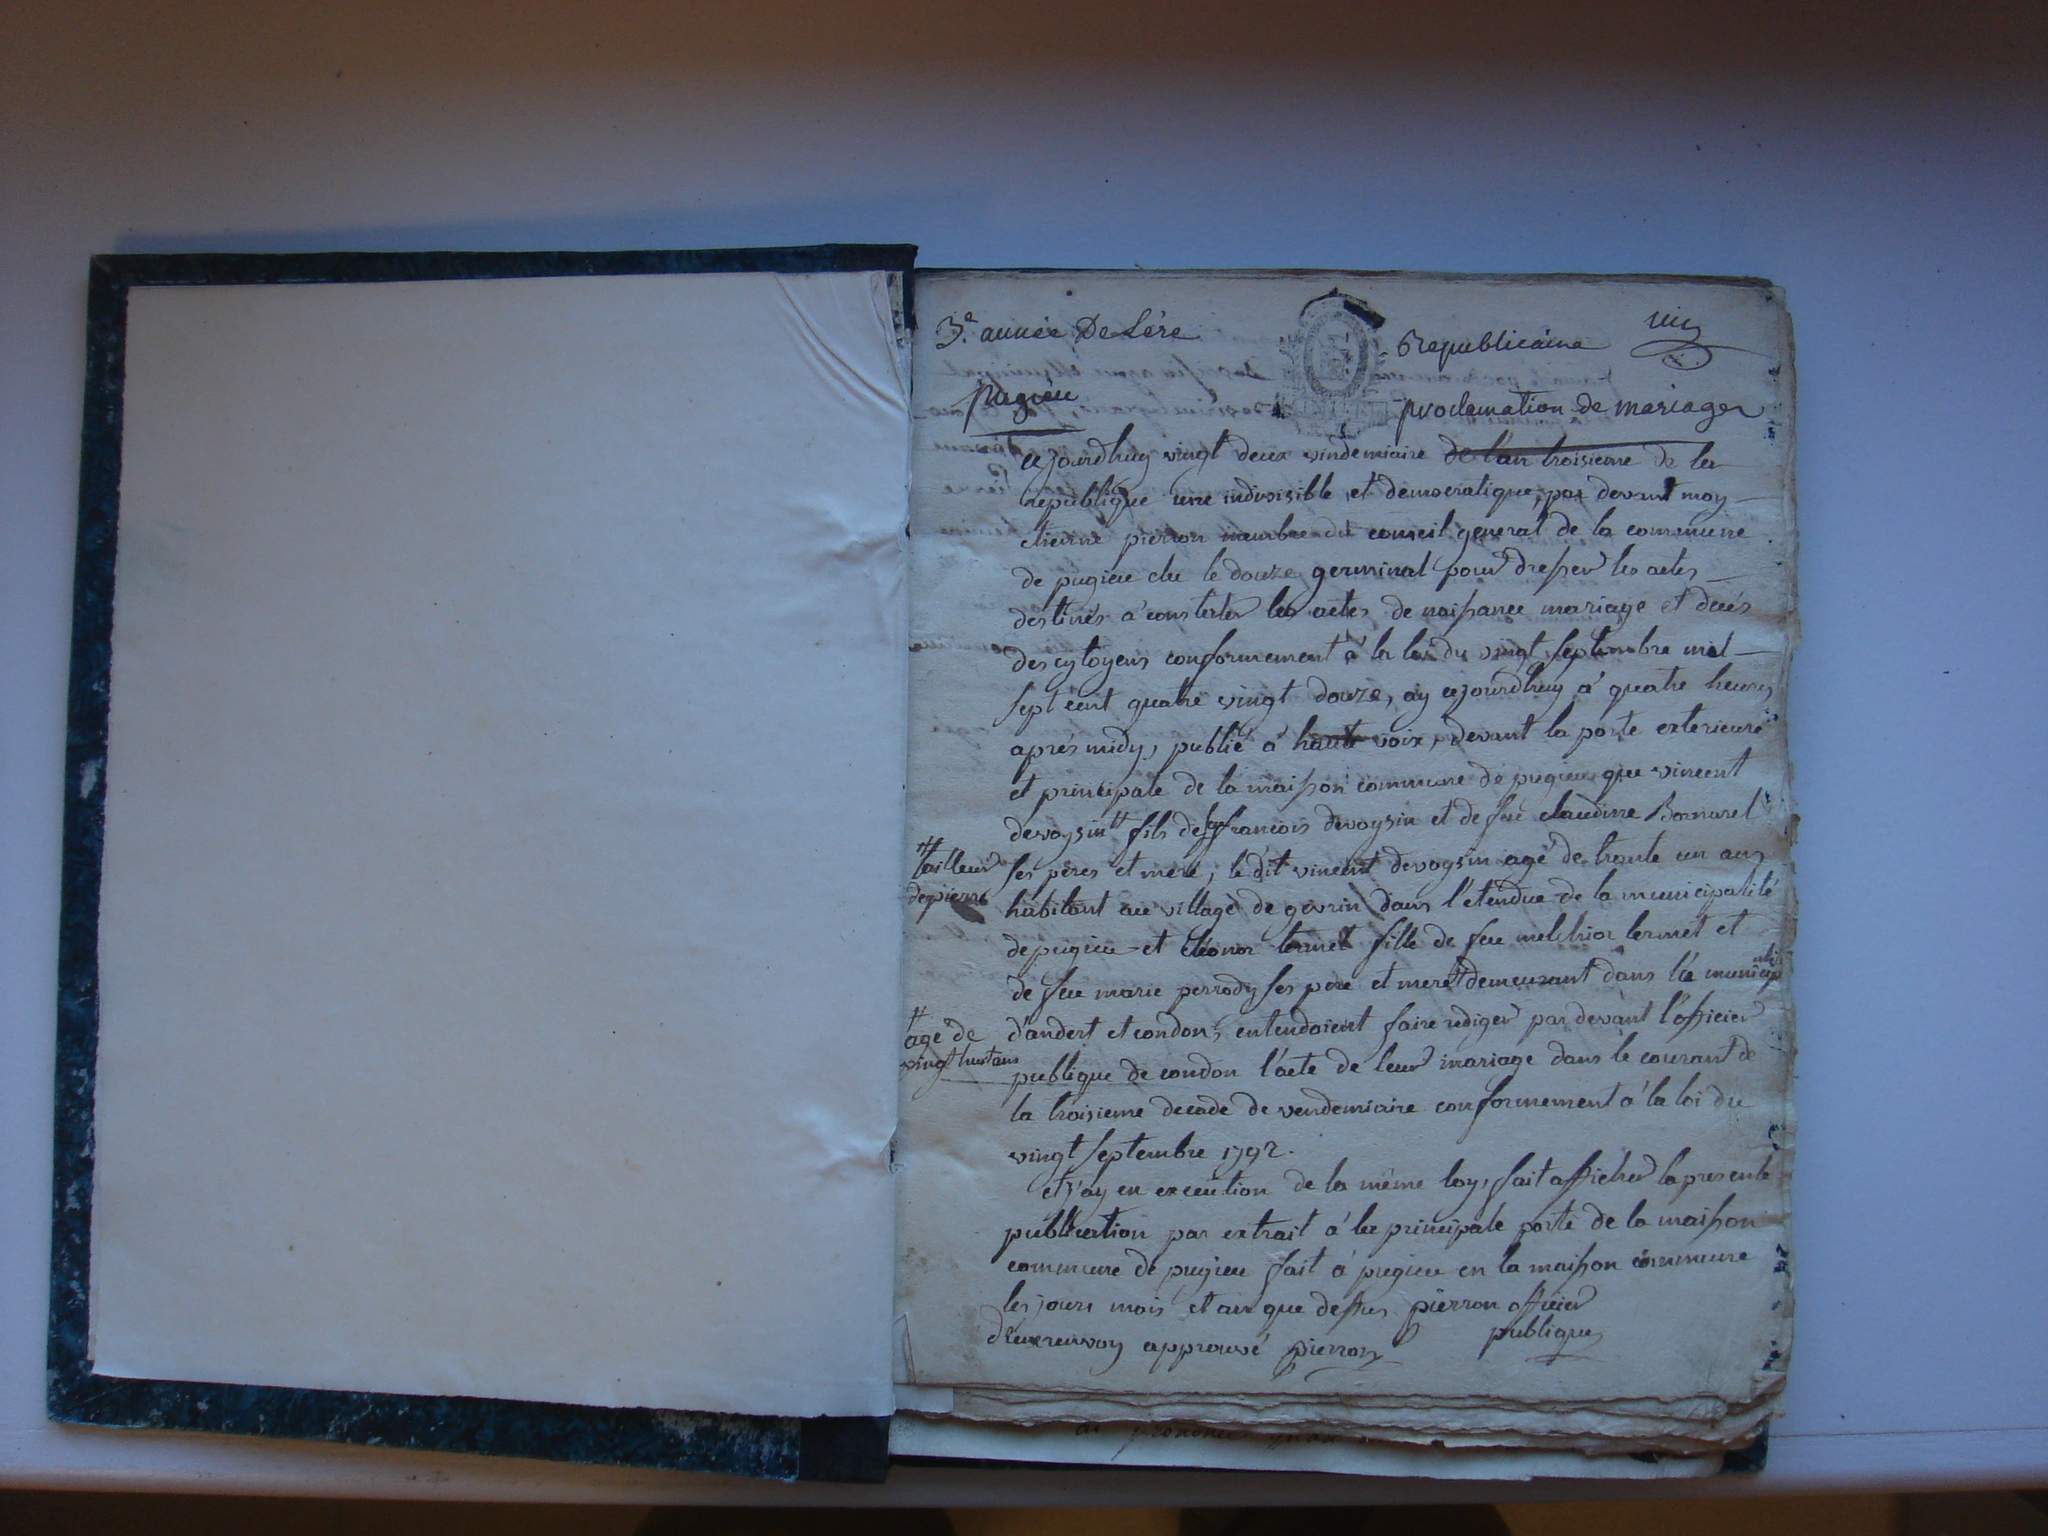 3e année De Lére
Republicaine
pugieu
proclamation de mariages
cejourdhuy vingt deux vindemiaire de l'an troisieme de la
republique une indivisible et democratique, par devant moy
etienne pierron membre du conseil general de la commune
de pugieu elu le douze germinal pour dresser les actes
destinés a constater les actes de naissance mariage et decés
des cytoyens conformement à la loi du vingt septembre mil
sept cent quatre vingt douze, ay cejourdhuy a quatre heures
aprés midy, publié a haute voix, devant la porte exterieure
et principale de la maison commune de pugieu que vincent
devoysin # fils de françois devoysin et de feue claudine Bornarel
# tailleur
de pierre
ses péres et mere, ledit vincent devoysin agé de trante un ans
habitant au village de gevrin dans l'etendue de la municipalité
de pugieu et eléonor lermet fille de feu melchior lermet et
de feue marie perrody ses pere et mere # demeurant dans la municip
# agé de
vingt huit ans
d'andert et condon, entendoient faire rediger par devant l'officier
publique de condon l'acte de leur mariage dans le courant de
la troisieme decade de vendemiaire conformement a la loi du
vingt septembre 1792.
et j'ay en execution de la même loy, fait afficher la presente
publication par extrait a la principale porte de la maison
commune de pugieu fait a pugieu en la maison commune
les jours mois et an que dessus pierron officier
publique
approuvé pierron